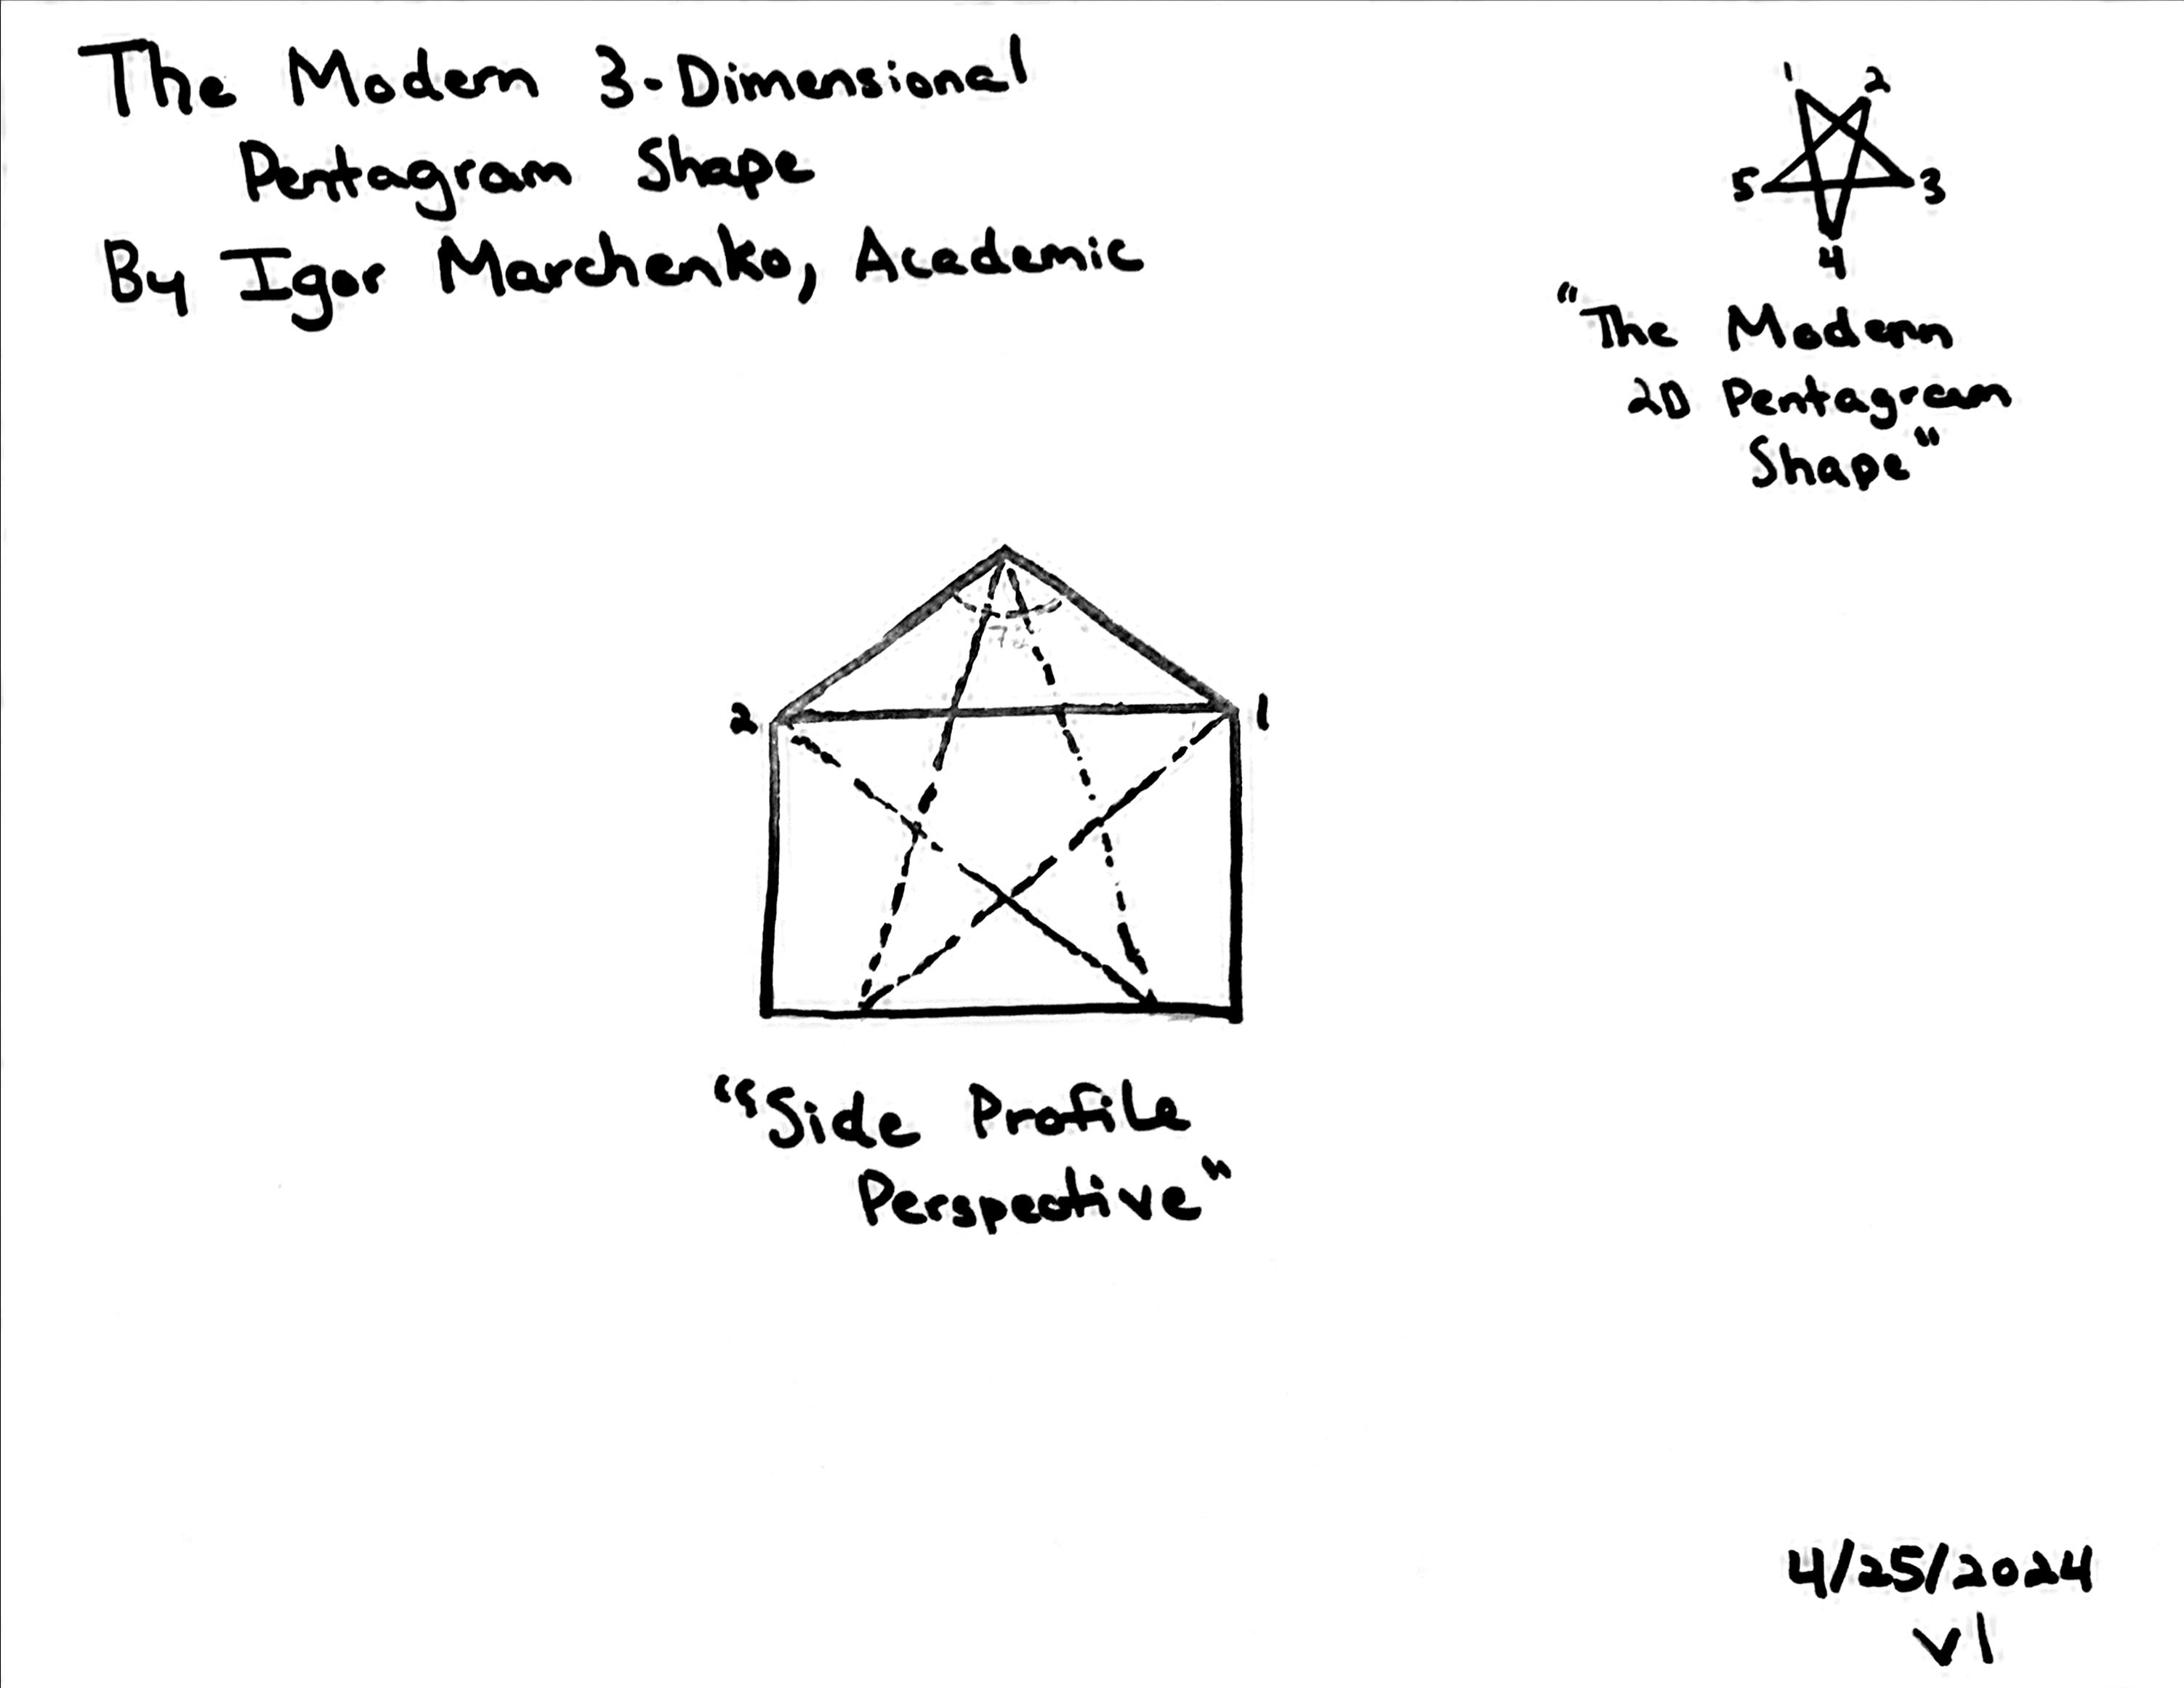 The Modern 3-Dimensional
Pentagram Shape
By Igor Marchenko, Academic
1
2
5
3
4
"The Modern
2D Pentagram
Shape"
2
1
"Side Profile
Perspective"
4/25/2024
v1